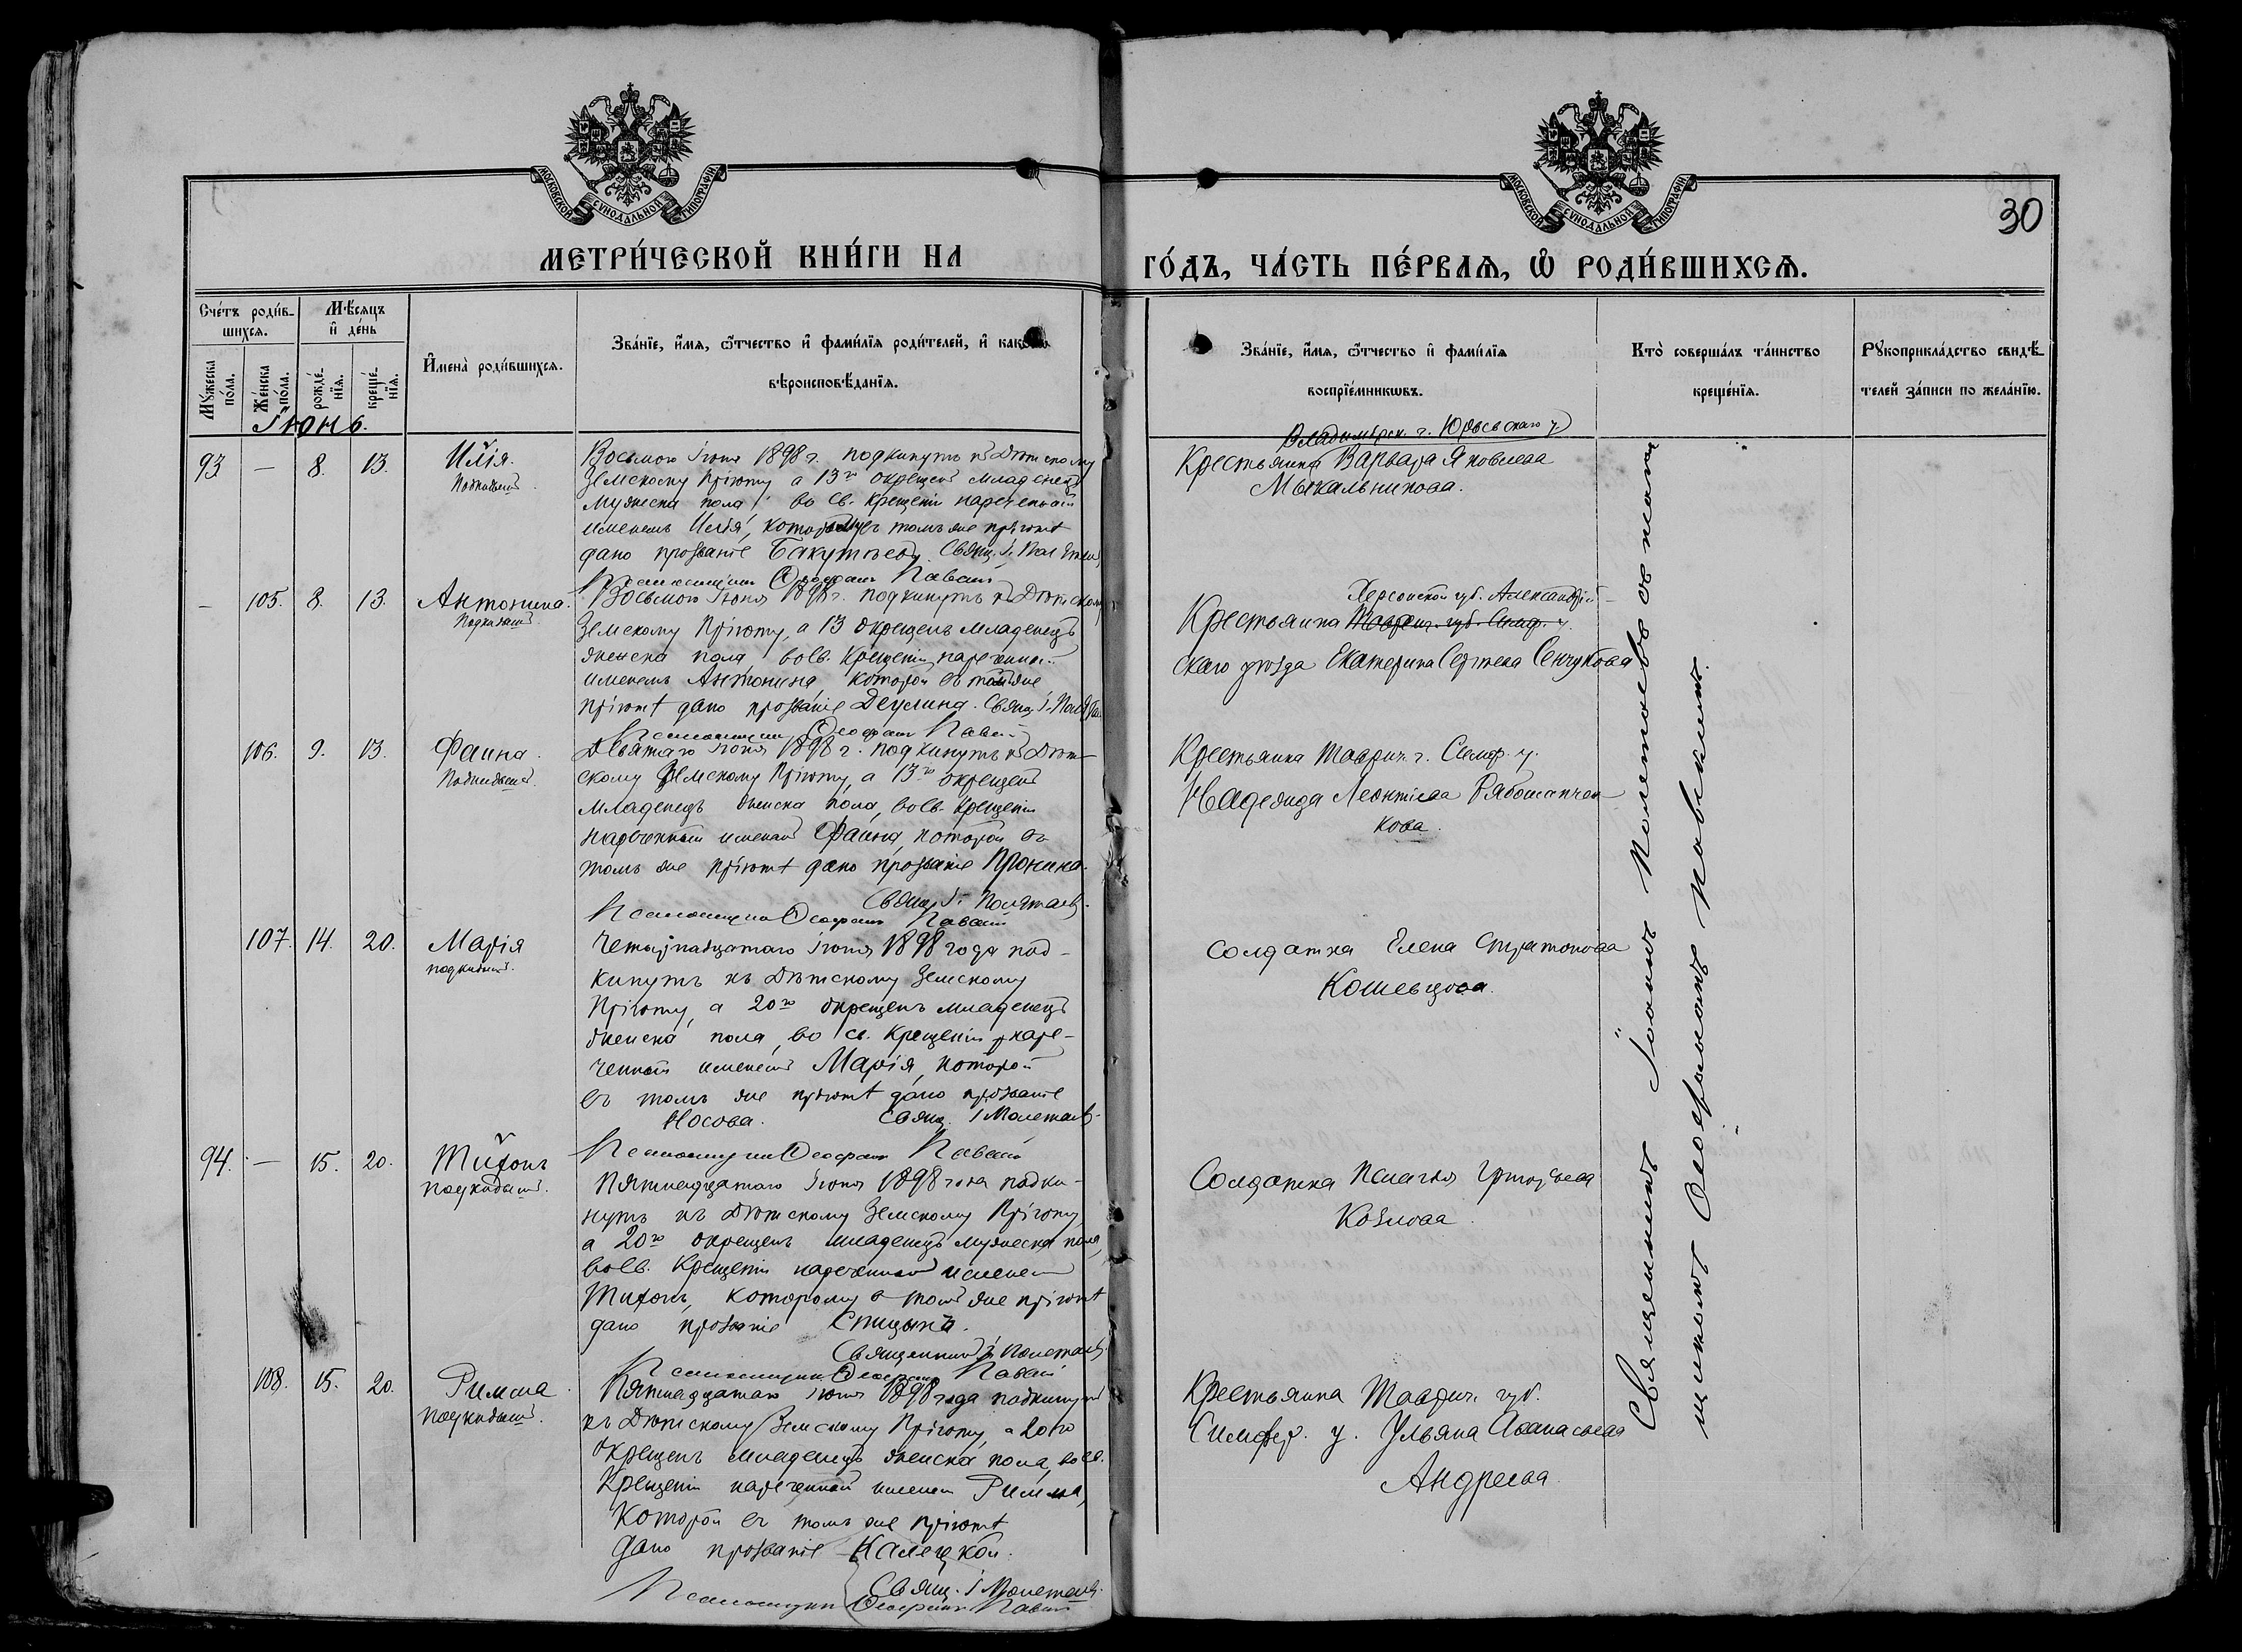 МОСКОВСКОЙ СѴНОДАЛЬНОЙ ТИПОГРАФІИ
МОСКОВСКОЙ СѴНОДАЛЬНОЙ ТИПОГРАФІИ
30
МЕТРИ́ЧЕСКОЙ КНИ́ГИ НА
ГО́ДЪ, ЧА́СТЬ ПЕ́РВАѦ, Ѽ РОДИ́ВШИХСѦ.
Сче́тъ роди́в-
шихсѧ.
Мѣ́сѧцъ
и҆ де́нь
Мꙋ́жеска
по́ла.
Же́нска
по́ла.
рожде́-
нїѧ.
креще́-
нїѧ.
И҆мена̀ роди́вшихсѧ.
Зва́нїе, и҆́мѧ, ѻ҆́тчество и҆ фами́лїѧ роди́телей, и҆ како́гѡ
вѣроисповѣ́данїѧ.
Зва́нїе, и҆́мѧ, ѻ҆́тчество и҆ фами́лїѧ
воспрїе́мникѡвъ.
Кто̀ соверша́лъ та́инство
креще́нїѧ.
Рꙋкоприкла́дство свидѣ́-
телей за́писи по жела́нїю.
Іюнь.
93 — 8. 13. Илія.
Подкидышъ.
Восьмого Іюня 1898 г. подкинутъ къ Дѣтскому
Земскому Пріюту, а 13го окрещенъ младенецъ
мужеска пола, во св. крещеніи нареченный
именемъ Илія, которому въ томъ же пріютѣ
дано прозваніе
Свящ. І.
Псаломщикъ Ѳеофанъ
Владимірск. г. Юрьевскаго у.
Крестьянка Варвара Яковлева
Мыкальникова.
— 105. 8. 13. Антонина.
Подкидышъ.
Восьмого Іюня 1898 г. подкинутъ къ Дѣтскому
Земскому Пріюту, а 13 окрещенъ младенецъ
женска пола, во св. крещеніи нареченный
именемъ Антонина, которой въ томъ же
пріютѣ дано прозваніе Деулина. Свящ. І.
Псаломщикъ Ѳеофанъ
Херсонской губ. Александрій-
Крестьянка Таврич. губ. Симф. у.
скаго уѣзда Екатерина Сергѣева Сенчукова
106. 9. 13. Фаина.
Подкидышъ.
Девятаго Іюня 1898 г. подкинутъ къ Дѣт-
скому Земскому Пріюту, а 13го окрещенъ
младенецъ женска пола, во св. крещеніи
нареченный именемъ Фаина, которой въ
томъ же пріютѣ дано прозваніе Пронина.
Свящ. І.
Псаломщикъ Ѳеофанъ
Крестьянка Таврич. г. Симф. у.
Надежда Леонтіева
кова.
107. 14. 20. Марія
подкидышъ.
Четырнадцатаго Іюня 1898 года под-
кинутъ къ Дѣтскому Земскому
Пріюту, а 20го окрещенъ младенецъ
женска пола, во св. крещеніи наре-
ченный именемъ Марія, которой
въ томъ же пріютѣ дано прозваніе
Носова. Свящ. І.
Псаломщикъ Ѳеофанъ
Солдатка Елена Стратонова
Кошевцова.
94. — 15. 20. Тихонъ
подкидышъ.
Пятнадцатаго Іюня 1898 года подки-
нутъ къ Дѣтскому Земскому Пріюту,
а 20го окрещенъ младенецъ мужеска пола,
во св. крещеніи нареченный именемъ
Тихонъ, которому въ томъ же пріютѣ
дано прозваніе Спицынъ.
Священникъ І.
Псаломщикъ Ѳеофанъ
Солдатка Пелагея Григорьева
Козлова.
108. 15. 20. Римма.
подкидышъ.
Пятнадцатаго Іюня 1898 года подкинутъ
къ Дѣтскому Земскому Пріюту, а 20го
окрещенъ младенецъ женска пола, во св.
крещеніи нареченный именемъ Римма,
которой въ томъ же пріютѣ
дано прозваніе
Свящ. І.
Псаломщикъ Ѳеофанъ
Крестьянка Таврич. губ.
Симфер. у. Ульяна Аѳанасьева
Андреева.
Священникъ Іоаннъ съ псалом-
щикомъ